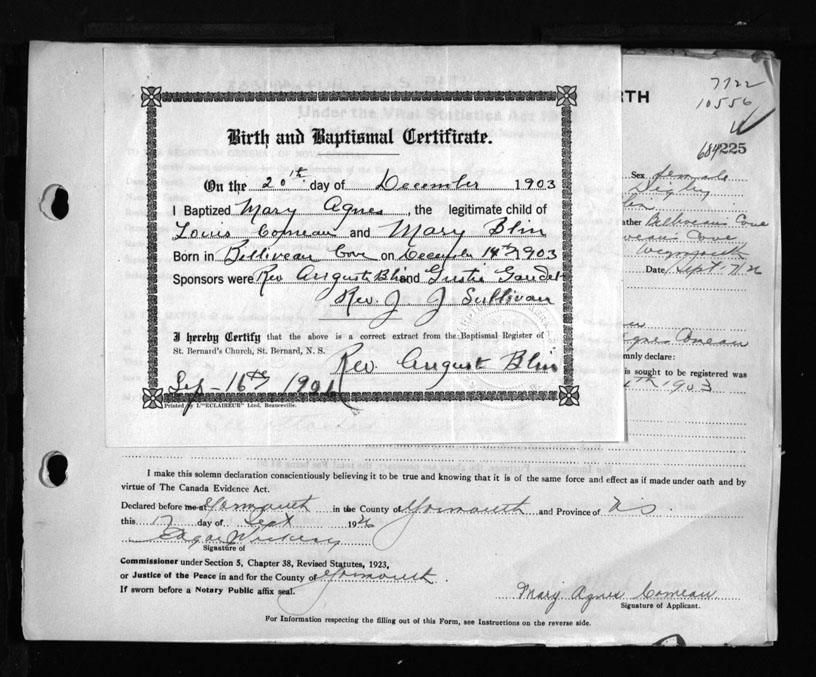 7722
10556
RTH
684225
Birth and Baptismal Certificate.
On the 20th day of December 1903
I Baptized Mary Agnes, the legitimate child of
Louis Comeau and Mary Blin
Born in Belliveau Cove on December 14th 1903
Sponsors were Rev August Blin and Gustie Gaudet
Rev. J. J Sullivan
I hereby Certify that the above is a correct extract from the Baptismal Register of
St. Bernard's Church, St. Bernard, N. S.
Rev. August Blin
Sep - 16th 192
Printed by L"ECLAIREUR" Ltd, Beauceville.
Sex female
Digby
ather Belliveau Cove
iveau Cove
Weymouth
Date Sept 17/26
gnes Comeau
mnly declare:
is sought to be registered was
th 1903
I make this solemn declaration conscientiously believing it to be true and knowing that it is of the same force and effect as if made under oath and by
virtue of The Canada Evidence Act.
Declared before me at Yarmouth in the County of Yarmouth and Province of N S
this 17 day of Sept 1926
Edgar
Signature of
Commissioner under Section 5, Chapter 38, Revised Statutes, 1923,
or Justice of the Peace in and for the County of Yarmouth.
If sworn before a Notary Public affix seal.
Mary Agnes Comeau
Signature of Applicant.
For Information respecting the filling out of this Form, see Instructions on the reverse side.